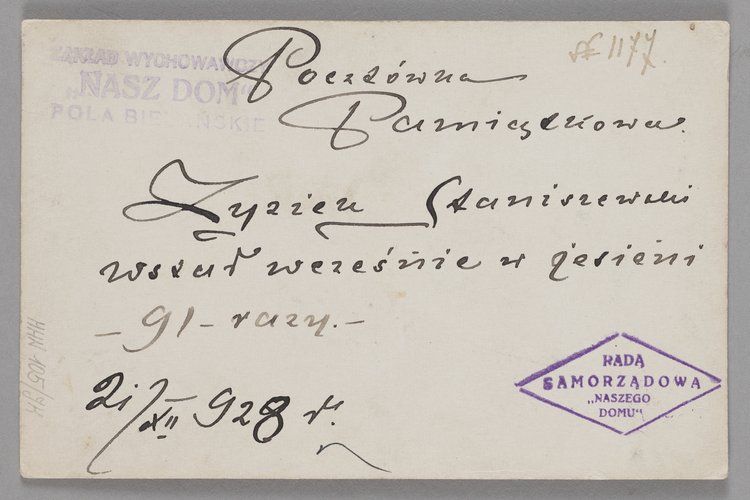 ZAKŁAD WYCHOWAWCZY
„NASZ DOM"
POLA BIELAŃSKIE
№ 1177.
Pocztówka
Pamiątkowa.
Zyzien Staniszewski
wstał wcześnie w jesieni
– 91 – razy. –
21/XII 928 r.
RADA
SAMORZĄDOWA
„NASZEGO
DOMU"